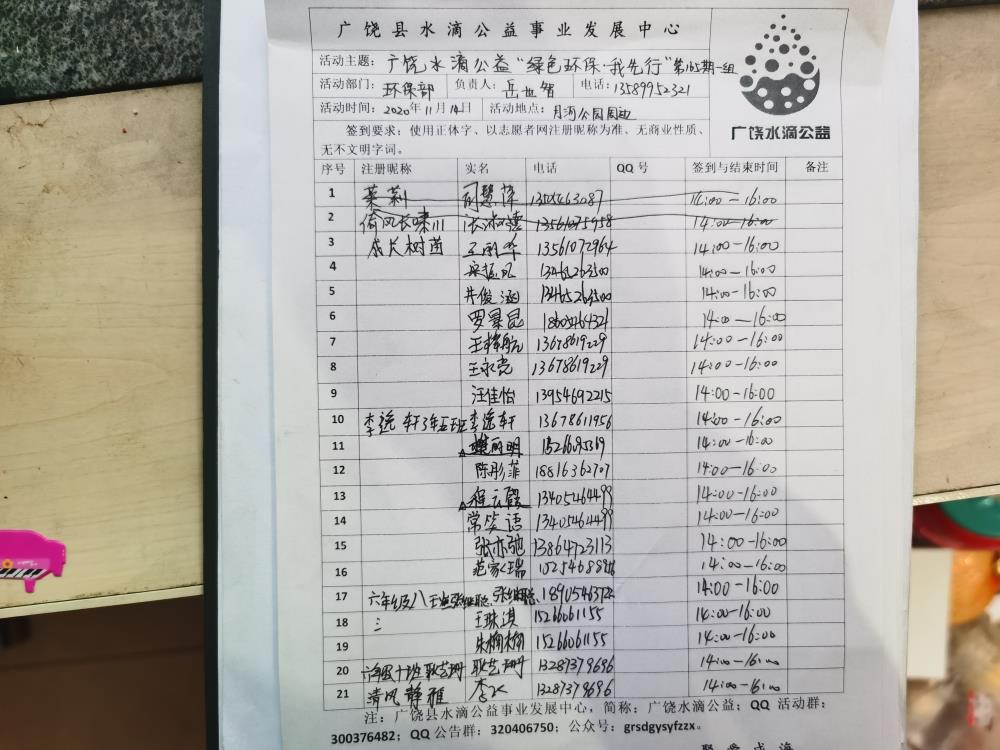 广饶县水滴公益事业发展中心
活动主题: 广饶水滴公益“绿色环保·我先行”第165期一组
活动部门: 环保部 负责人: 岳世智 电话: 13589952321
活动时间: 2020年11月14日 活动地点: 月河公园周边
签到要求: 使用正体字、以志愿者网注册昵称为准、无商业性质、
无不文明字词。
广饶水滴公益
序号 注册昵称 实名 电话 QQ号 签到与结束时间 备注
1 茉莉 14:00-16:00
2 倚风长啸川 14:00-16:00
3 成长树菌 13561072964 14:00-16:00
4 13465263500 14:00-16:00
5 井俊涵 13465263500 14:00-16:00
6 罗景昆 18605464321 14:00-16:00
7 13678619229 14:00-16:00
8 王永亮 13678619229 14:00-16:00
9 汪佳怡 13954692215 14:00-16:00
10 李逸轩3年五班 李逸轩 13678611956 14:00-16:00
11 14:00-16:00
12 陈彤菲 18816362707 14:00-16:00
13 程云霞 13405464499 14:00-16:00
14 常笑语 13405464499 14:00-16:00
15 张亦驰 13864723113 14:00-16:00
16 范家瑞 14:00-16:00
17 14:00-16:00
18 三 王琳淇 15266061155 14:00-16:00
19 朱栩栩 15266061155 14:00-16:00
20 六年级十班 耿艺珊 耿艺珊 13287379696 14:00-16:00
21 清风静雅 13287379696 14:00-16:00
注: 广饶县水滴公益事业发展中心, 简称: 广饶水滴公益; QQ 活动群:
300376482; QQ 公告群: 320406750; 公众号: grsdgysyfzzx。